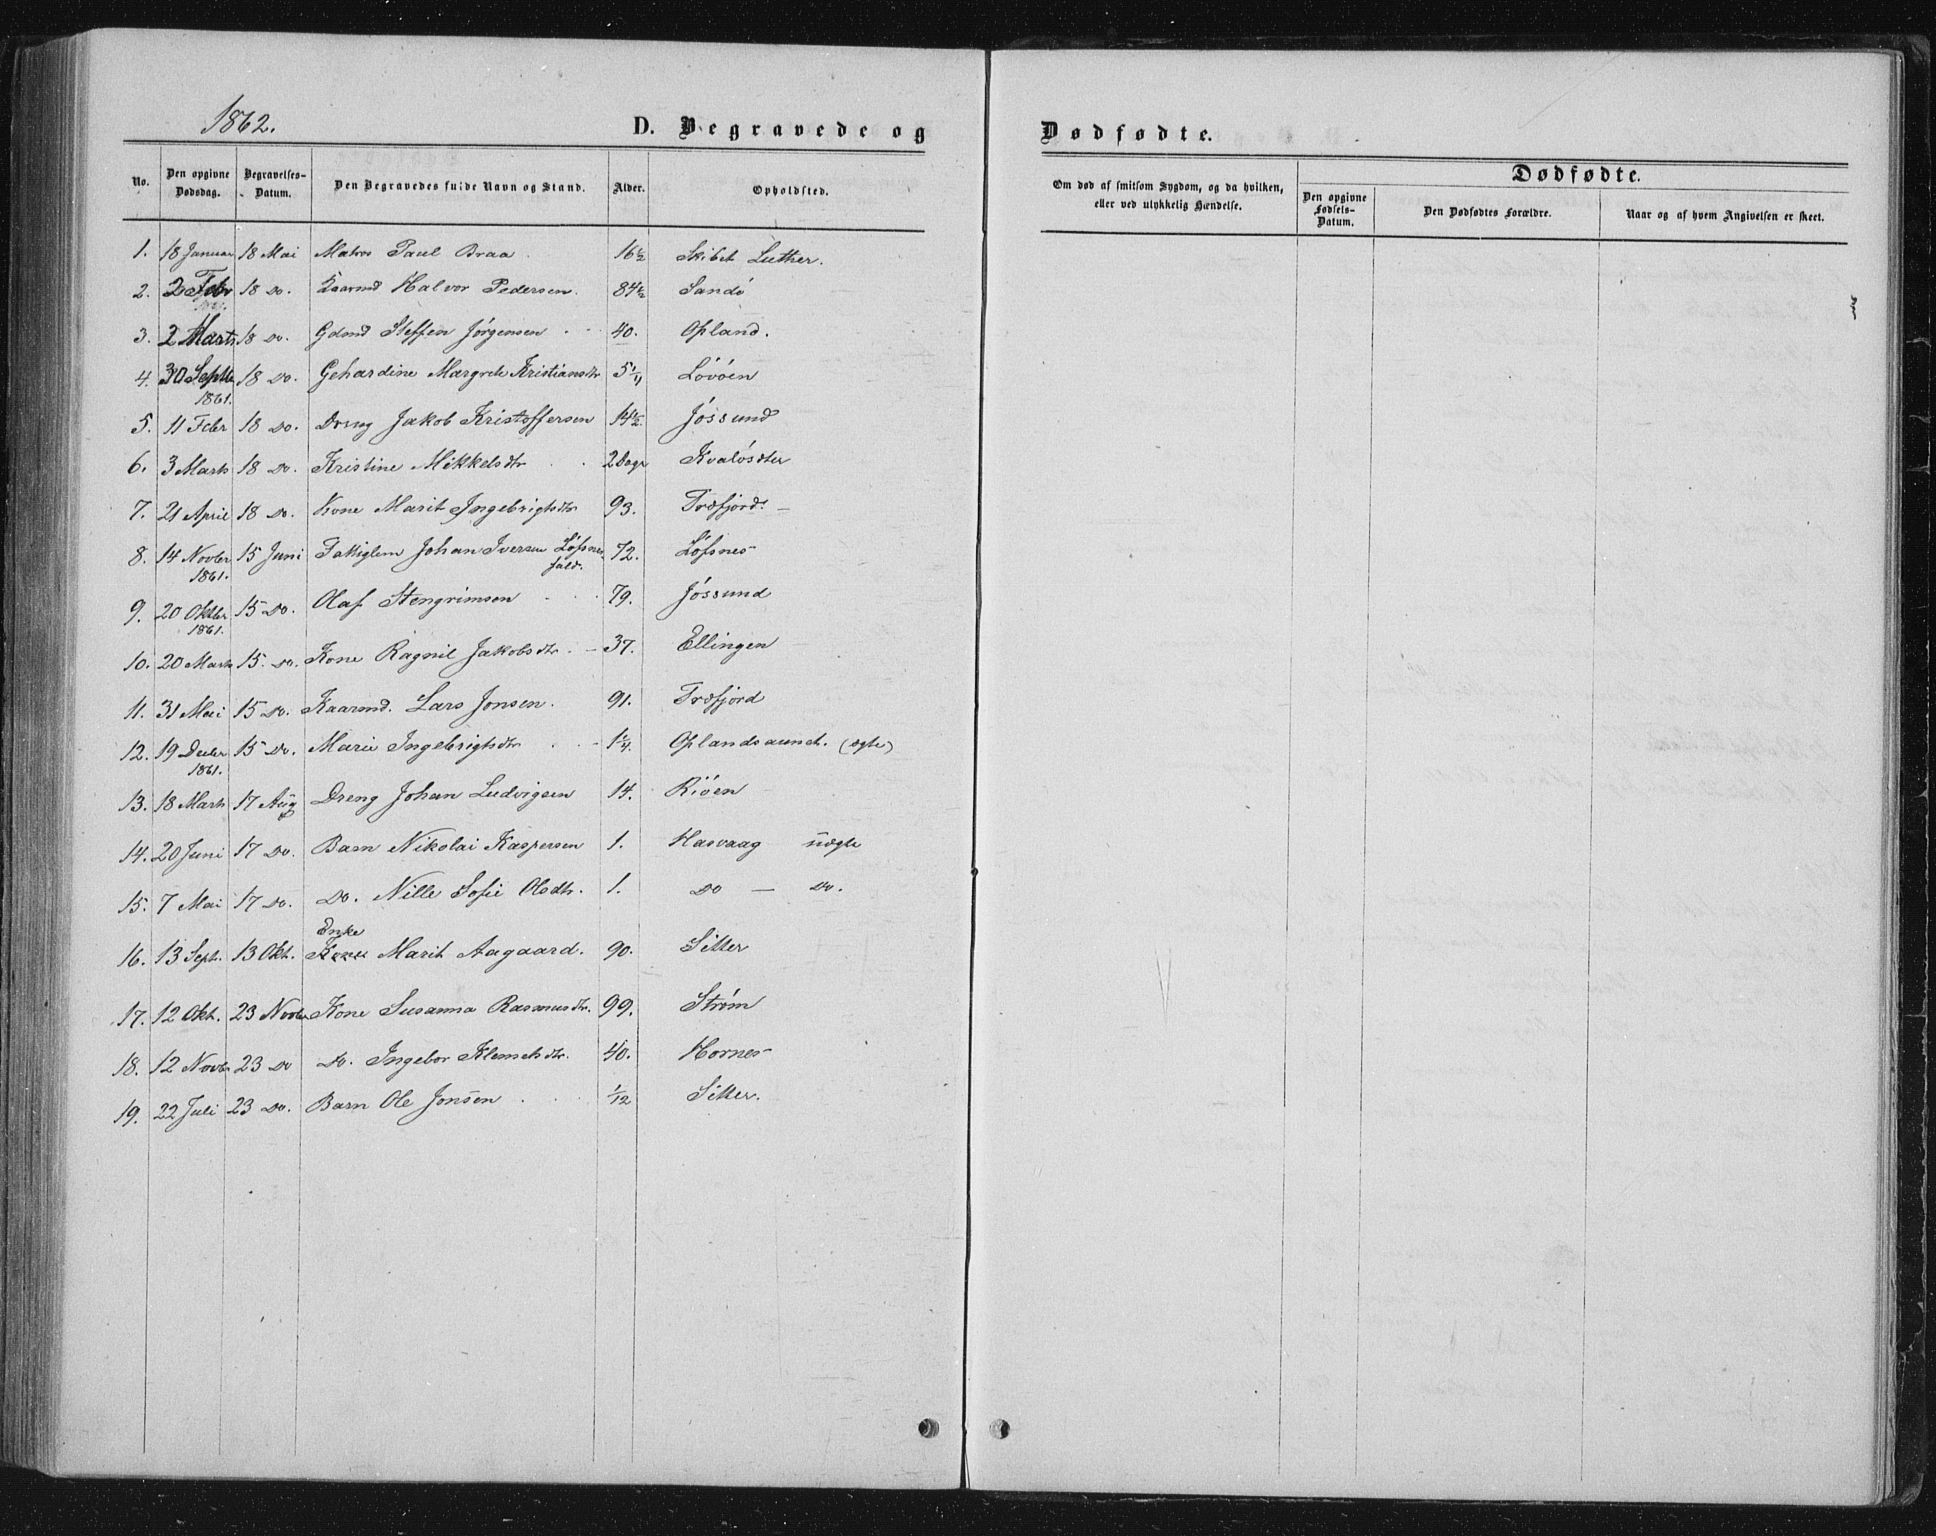 1862.
D. Begravede og Dødfødte.
No. Den opgivne Dødsdag. Begravelses-Datum. Den Begravedes fulde Navn og Stand. Alder. Opholdsted.
Om død af smitsom Sygdom, og da hvilken, eller ved ulykkelig Hændelse.
Dødfødte.
Den opgivne Fødsels-Datum. Den Dødfødtes Forældre. Naar og af hvem Angivelsen er skeet.
1. 18 Januar 18 Mai Matros Paul Braa 16½ Skibet Luther.
2. 2 Febr 18 Do. Kaarmd Halvor Pedersen. 84½ Sandö
3. 2 Marts 18 Do. Gdmd Steffen Jörgensen 40. Opland.
4. 30 Septbr 1861. 18 Do. Gehardine Margrete Kristiansdtr 5 Lövöen
5. 11 Febr 18 Do. Dreng Jakob Kristoffersen 14½ Jössund
6. 3 Marts 18 Do. Kristine Mikkelsdtr 2 Dage Kvalösæter
7. 21 April 18 Do. Kone Marit Ingebrigtsdtr 93. Træfjord.
8. 14 Novbr 1861. 15 Juni Fattiglem Johan Iversen Löfsnes 72. Löfsnes
fald.
9. 20 Oktbr 1861. 15 Do. Olaf Stengrimsen 79. Jössund
10. 20 Marts 15. Do. Kone Ragnil Jakobsdtr. 37. Ellingen
11. 31 Mai 15 Do. Kaarmd. Lars Jonsen. 91. Træfjord
12. 19 Decbr 1861. 15 Do. Marie Ingebrigtsdtr 1¼. Oplandsaunet. (ægte)
13. 18 Marts 17 Aug Dreng Johan Ludvigsen 14. Riöen
14. 20 Juni 17 Do. Barn Nikolai Kaspersen 1. Hasvaag uægte
15. 7 Mai 17 Do. Do. Nille Sofie Olsdtr. 1. Do — Do.
Enke
16. 13 Sept. 13 Okt. Kone Marit Aagaard. 90. Sitter
17. 12 Okt. 23 Novbr Kone Susanna Rasmusdtr. 99. Ström
18. 12 Novbr 23 Do Do. Ingebor Klemetsdtr. 40. Hornes
19. 22 Juli 23 Do. Barn Ole Jonsen 1/12 Sitter.